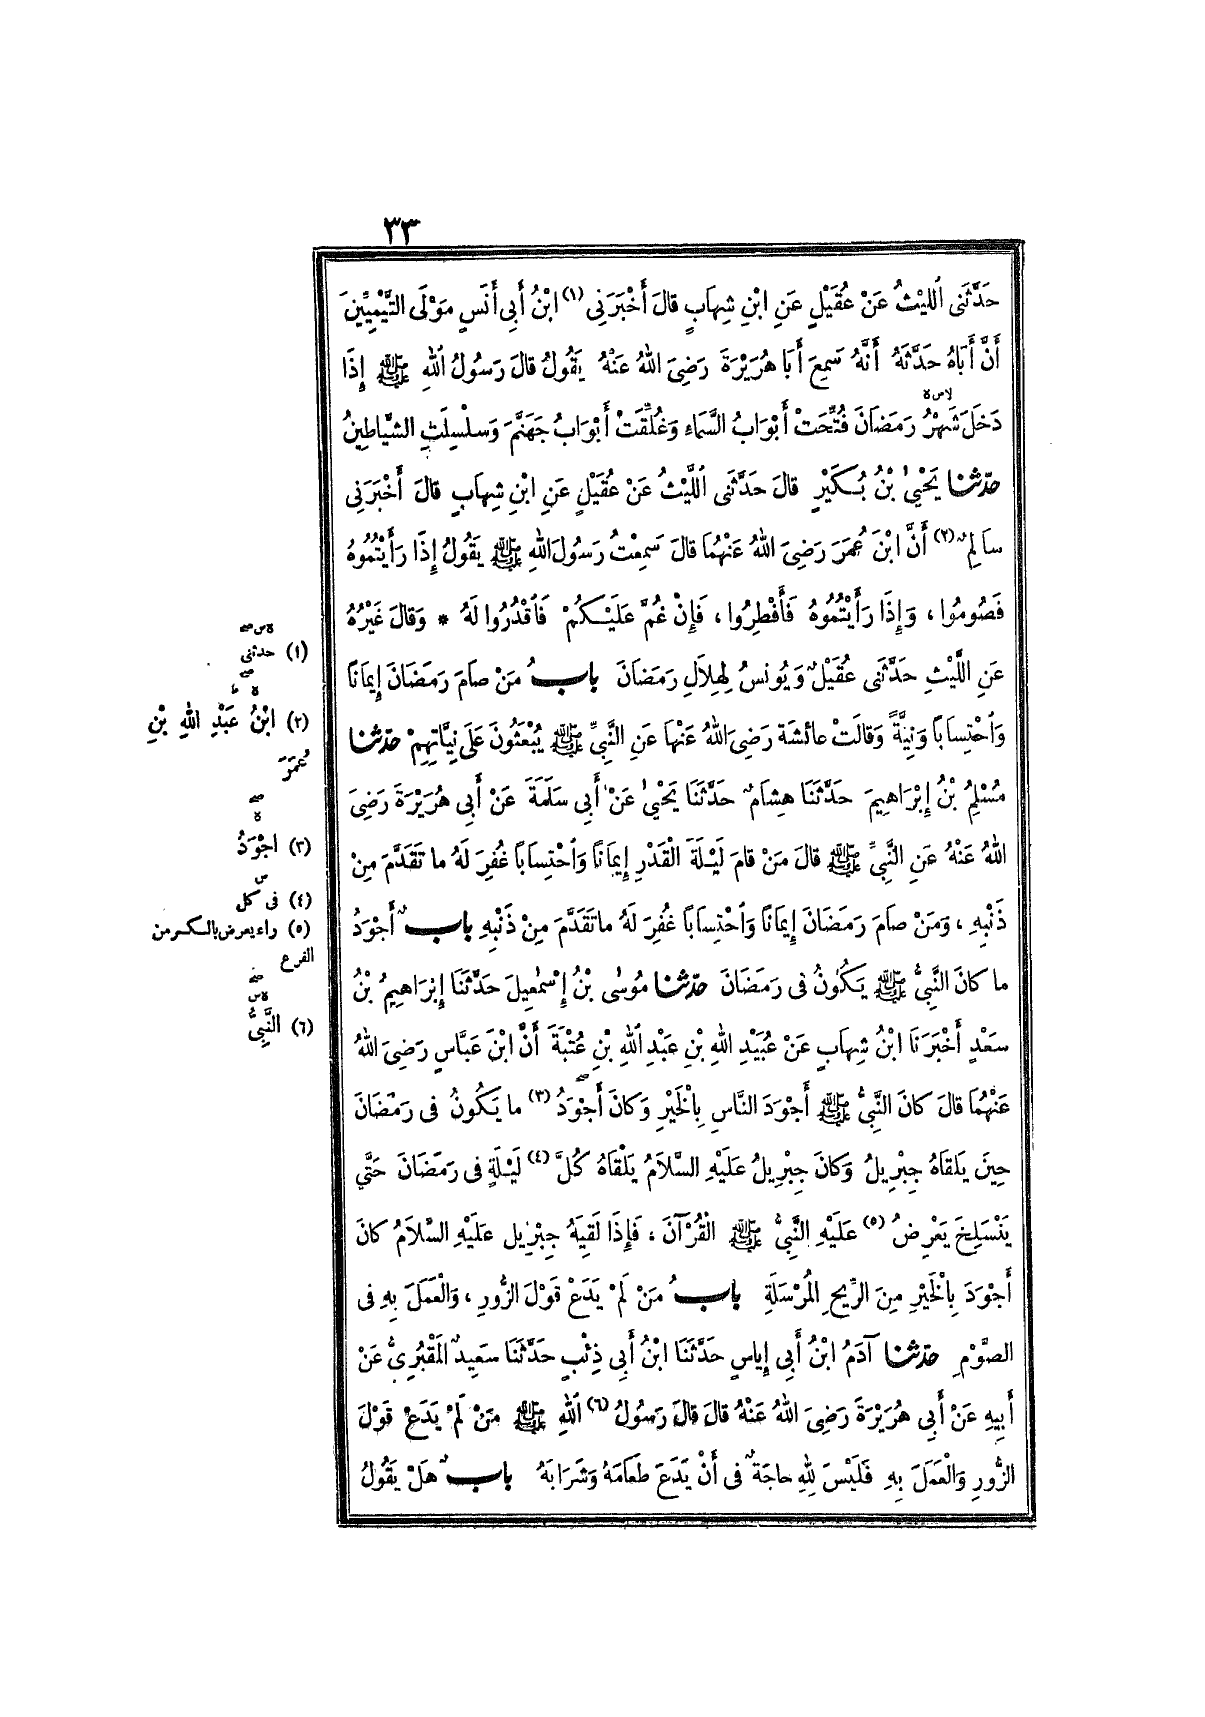 ٣٣
حَدَّثَنِى اللَّيْثُ عَنْ عُقَيْلٍ عَنِ ابْنِ شِهَابٍ قَالَ أَخْبَرَنِى (١) ابْنُ أَبِى أَنَسٍ مَوْلَى التَّيْمِيِّينَ
أَنَّ أَبَاهُ حَدَّثَهُ أَنَّهُ سَمِعَ أَبَا هُرَيْرَةَ رَضِىَ اللهُ عَنْهُ يَقُولُ قَالَ رَسُولُ اللهِ ﷺ إِذَا
دَخَلَ شَهْرُ رَمَضَانَ فُتِّحَتْ أَبْوَابُ السَّمَاءِ وَغُلِّقَتْ أَبْوَابُ جَهَنَّمَ وَسُلْسِلَتِ الشَّيَاطِينُ
حدّثنا يَحْيٰى بْنُ بُكَيْرٍ قَالَ حَدَّثَنِى اللَّيْثُ عَنْ عُقَيْلٍ عَنِ ابْنِ شِهَابٍ قَالَ أَخْبَرَنِى
سَالِمٌ (٢) أَنَّ ابْنَ عُمَرَ رَضِىَ اللهُ عَنْهُمَا قَالَ سَمِعْتُ رَسُولَ اللهِ ﷺ يَقُولُ إِذَا رَأَيْتُمُوهُ
فَصُومُوا ، وَإِذَا رَأَيْتُمُوهُ فَأَفْطِرُوا ، فَإِنْ غُمَّ عَلَيْكُمْ فَاقْدُرُوا لَهُ * وَقَالَ غَيْرُهُ
عَنِ اللَّيْثِ حَدَّثَنِى عُقَيْلٌ وَيُونُسُ لِهِلَالِ رَمَضَانَ بابُ مَنْ صَامَ رَمَضَانَ إِيمَانًا
وَاحْتِسَابًا وَنِيَّةً وَقَالَتْ عائشة رَضِىَ اللهُ عَنْهَا عَنِ النَّبِىِّ ﷺ يُبْعَثُونَ عَلَى نِيَّاتِهِمْ حدّثنا
مُسْلِمُ بْنُ إِبْرَاهِيمَ حَدَّثَنَا هِشَامٌ حَدَّثَنَا يَحْيٰى عَنْ أَبِى سَلَمَةَ عَنْ أَبِى هُرَيْرَةَ رَضِىَ
اللهُ عَنْهُ عَنِ النَّبِىِّ ﷺ قَالَ مَنْ قَامَ لَيْلَةَ الْقَدْرِ إِيمَانًا وَاحْتِسَابًا غُفِرَ لَهُ مَا تَقَدَّمَ مِنْ
ذَنْبِهِ ، وَمَنْ صَامَ رَمَضَانَ إِيمَانًا وَاحْتِسَابًا غُفِرَ لَهُ مَا تَقَدَّمَ مِنْ ذَنْبِهِ بابٌ أَجْوَدُ
مَا كَانَ النَّبِىُّ ﷺ يَكُونُ فِى رَمَضَانَ حدّثنا مُوسٰى بْنُ إِسْمٰعِيلَ حَدَّثَنَا إِبْرَاهِيمُ بْنُ
سَعْدٍ أَخْبَرَنَا ابْنُ شِهَابٍ عَنْ عُبَيْدِ اللهِ بْنِ عَبْدِ اللهِ بْنِ عُتْبَةَ أَنَّ ابْنَ عَبَّاسٍ رَضِىَ اللهُ
عَنْهُمَا قَالَ كَانَ النَّبِىُّ ﷺ أَجْوَدَ النَّاسِ بِالْخَيْرِ وَكَانَ أَجْوَدُ (٣) مَا يَكُونُ فِى رَمَضَانَ
حِينَ يَلْقَاهُ جِبْرِيلُ وَكَانَ جِبْرِيلُ عَلَيْهِ السَّلَامُ يَلْقَاهُ كُلَّ (٤) لَيْلَةٍ فِى رَمَضَانَ حَتَّى
يَنْسَلِخَ يَعْرِضُ (٥) عَلَيْهِ النَّبِىُّ ﷺ الْقُرْآنَ ، فَإِذَا لَقِيَهُ جِبْرِيل عَلَيْهِ السَّلَامُ كَانَ
أَجْوَدَ بِالْخَيْرِ مِنَ الرِّيحِ الْمُرْسَلَةِ بابُ مَنْ لَمْ يَدَعْ قَوْلَ الزُّورِ ، وَالْعَمَلَ بِهِ فِى
الصَّوْمِ حدّثنا آدَمُ ابْنُ أَبِى إِيَاسٍ حَدَّثَنَا ابْنُ أَبِى ذِئْبٍ حَدَّثَنَا سَعِيدٌ الْمَقْبُرِىُّ عَنْ
أَبِيهِ عَنْ أَبِى هُرَيْرَةَ رَضِىَ اللهُ عَنْهُ قَالَ قَالَ رَسُولُ (٦) اللهِ ﷺ مَنْ لَمْ يَدَعْ قَوْلَ
الزُّورِ وَالْعَمَلَ بِهِ فَلَيْسَ لِلهِ حَاجَةٌ فِى أَنْ يَدَعَ طَعَامَهُ وَشَرَابَهُ بابٌ هَلْ يَقُولُ
(١) حدثنى
(٢) ابْنُ عَبْدِ اللهِ بْنِ
عُمَرَ
(٣) اجْوَدُ
(٤) فى كل
(٥) راء يعرض بالكسر من
الفرع
(٦) النَّبِىُّ